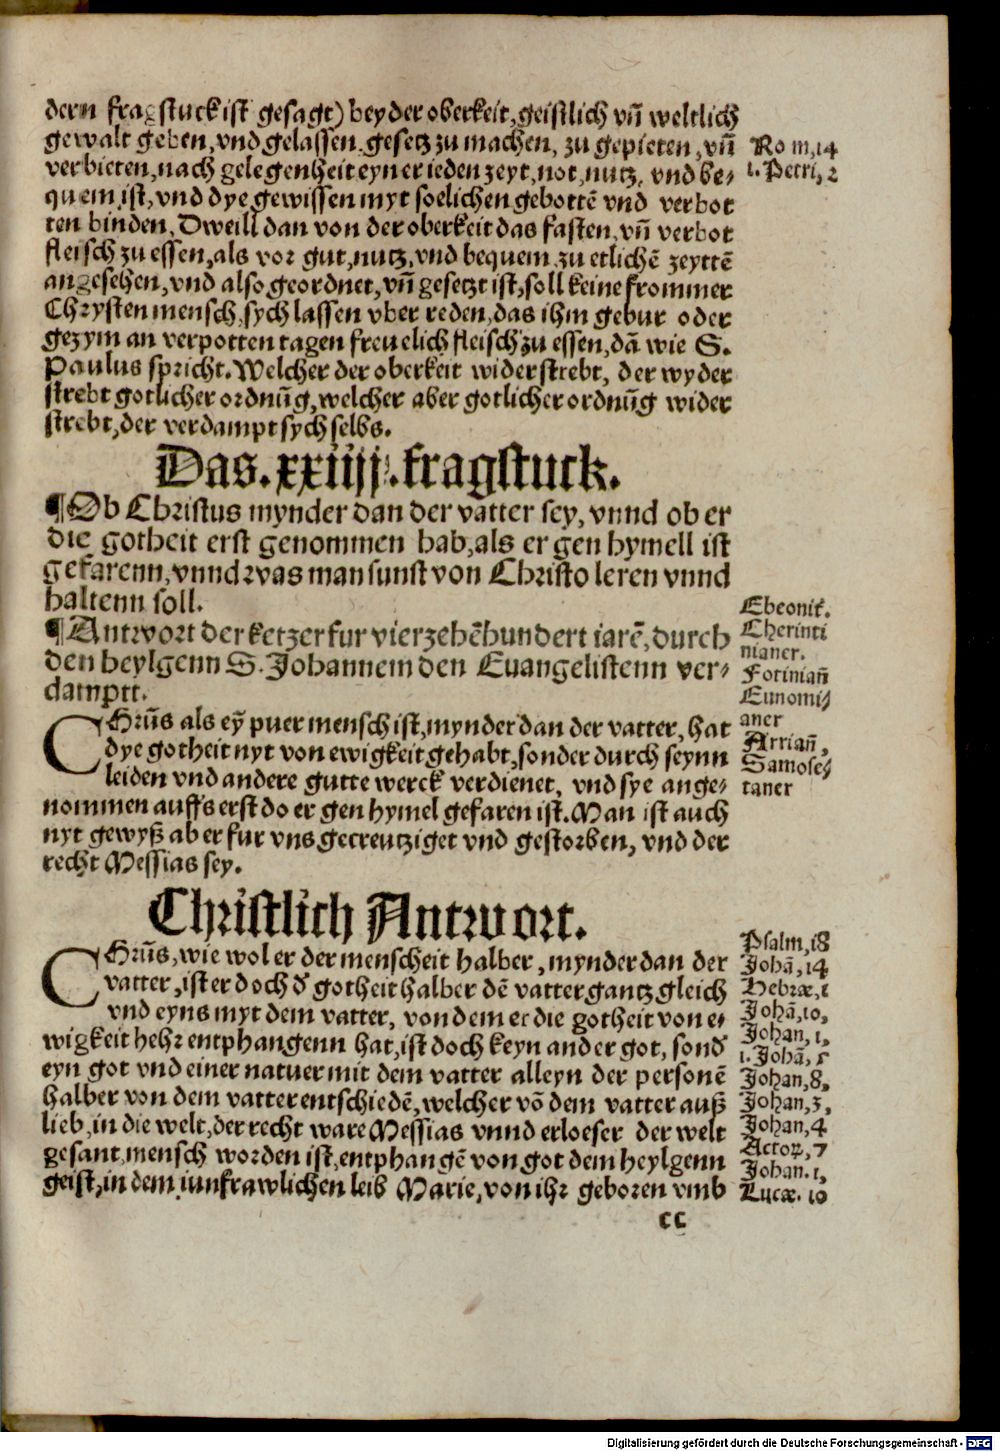 dern fragstuck ist gesagt) bey der oberkeit, geistlich vn̄ weltlich
gewalt geben, vnd gelassen, gesetz zu machen, zu gepieten, vn̄
verbieten, nach gelegenheit eyner ieden zeyt, not, nutz, vnd be⸗
quem ist, vnd dye gewissen myt soelichen gebottē vnd verbot
ten binden, Dweill dan von der oberkeit das fasten, vn̄ verbot
fleisch zu essen, als vor gut, nutz, vnd bequem zu etlichē zeyttē
angesehen, vnd also geordnet, vn̄ gesetzt ist, soll keine frommer
Chrysten mensch, sych lassen vber reden, das ihm gebur oder
gezym an verpotten tagen freuelich fleisch zu essen, dā wie S.
Paulus spricht. Welcher der oberkeit widerstrebt, der wyder
strebt gotlicher ordnūg, welcher aber gotlicher ordnūg wider
strebt, der verdampt sych selbs.
Rom, 14
1. Petri, 2
Das. xxiiij. fragstuck.
¶Ob Christus mynder dan der vatter sey, vnnd ob er
die gotheit erst genommen hab, als er gen hymell ist
gefarenn, vnnd was man sunst von Christo leren vnnd
haltenn soll.
¶Antwort der ketzer fur vierzehēhundert iarē, durch
den heylgenn S. Johannem den Euangelistenn ver⸗
damptt.
CHrūs als eȳ puer mensch ist, mynder dan der vatter, hat
dye gotheit nyt von ewigkeit gehabt, sonder durch seynn
leiden vnd andere gutte werck verdienet, vnd sye ange⸗
nommen auffs erst do er gen hymel gefaren ist. Man ist auch
nyt gewyß ab er fur vns gecreutziget vnd gestorben, vnd der
recht Messias sey.
Ebeonit.
Cherinti
nianer.
Fotinian̄
Eunomi⸗
aner
Arrian̄,
Samose⸗
taner
Christlich Antwort.
CHrūs, wie wol er der menscheit halber, mynder dan der
vatter, ist er doch d̛ gotheit halber dē vatter gantz gleich
vnd eyns myt dem vatter, von dem er die gotheit von e⸗
wigkeit hehr entphangenn hat, ist doch keyn ander got, sond̛
eyn got vnd einer natuer mit dem vatter alleyn der personē
halber von dem vatter entschiedē, welcher vō dem vatter auß
lieb, in die welt, der recht ware Messias vnnd erloeser der welt
gesant, mensch worden ist, entphangē von got dem heylgenn
geist, in dem iunfrawlichen leib Marie, von ihr geboren vmb
Psalm, 18
Johā, 14
Hebræ, 1
Johā, 10,
Johan, 1,
1. Johā, 5
Johan, 8,
Johan, 3,
Johan, 4
Actoꝝ, 7
Johan. 1,
Lucæ. 10
cc
Digitalisierung gefördert durch die Deutsche Forschungsgemeinschaft - DFG